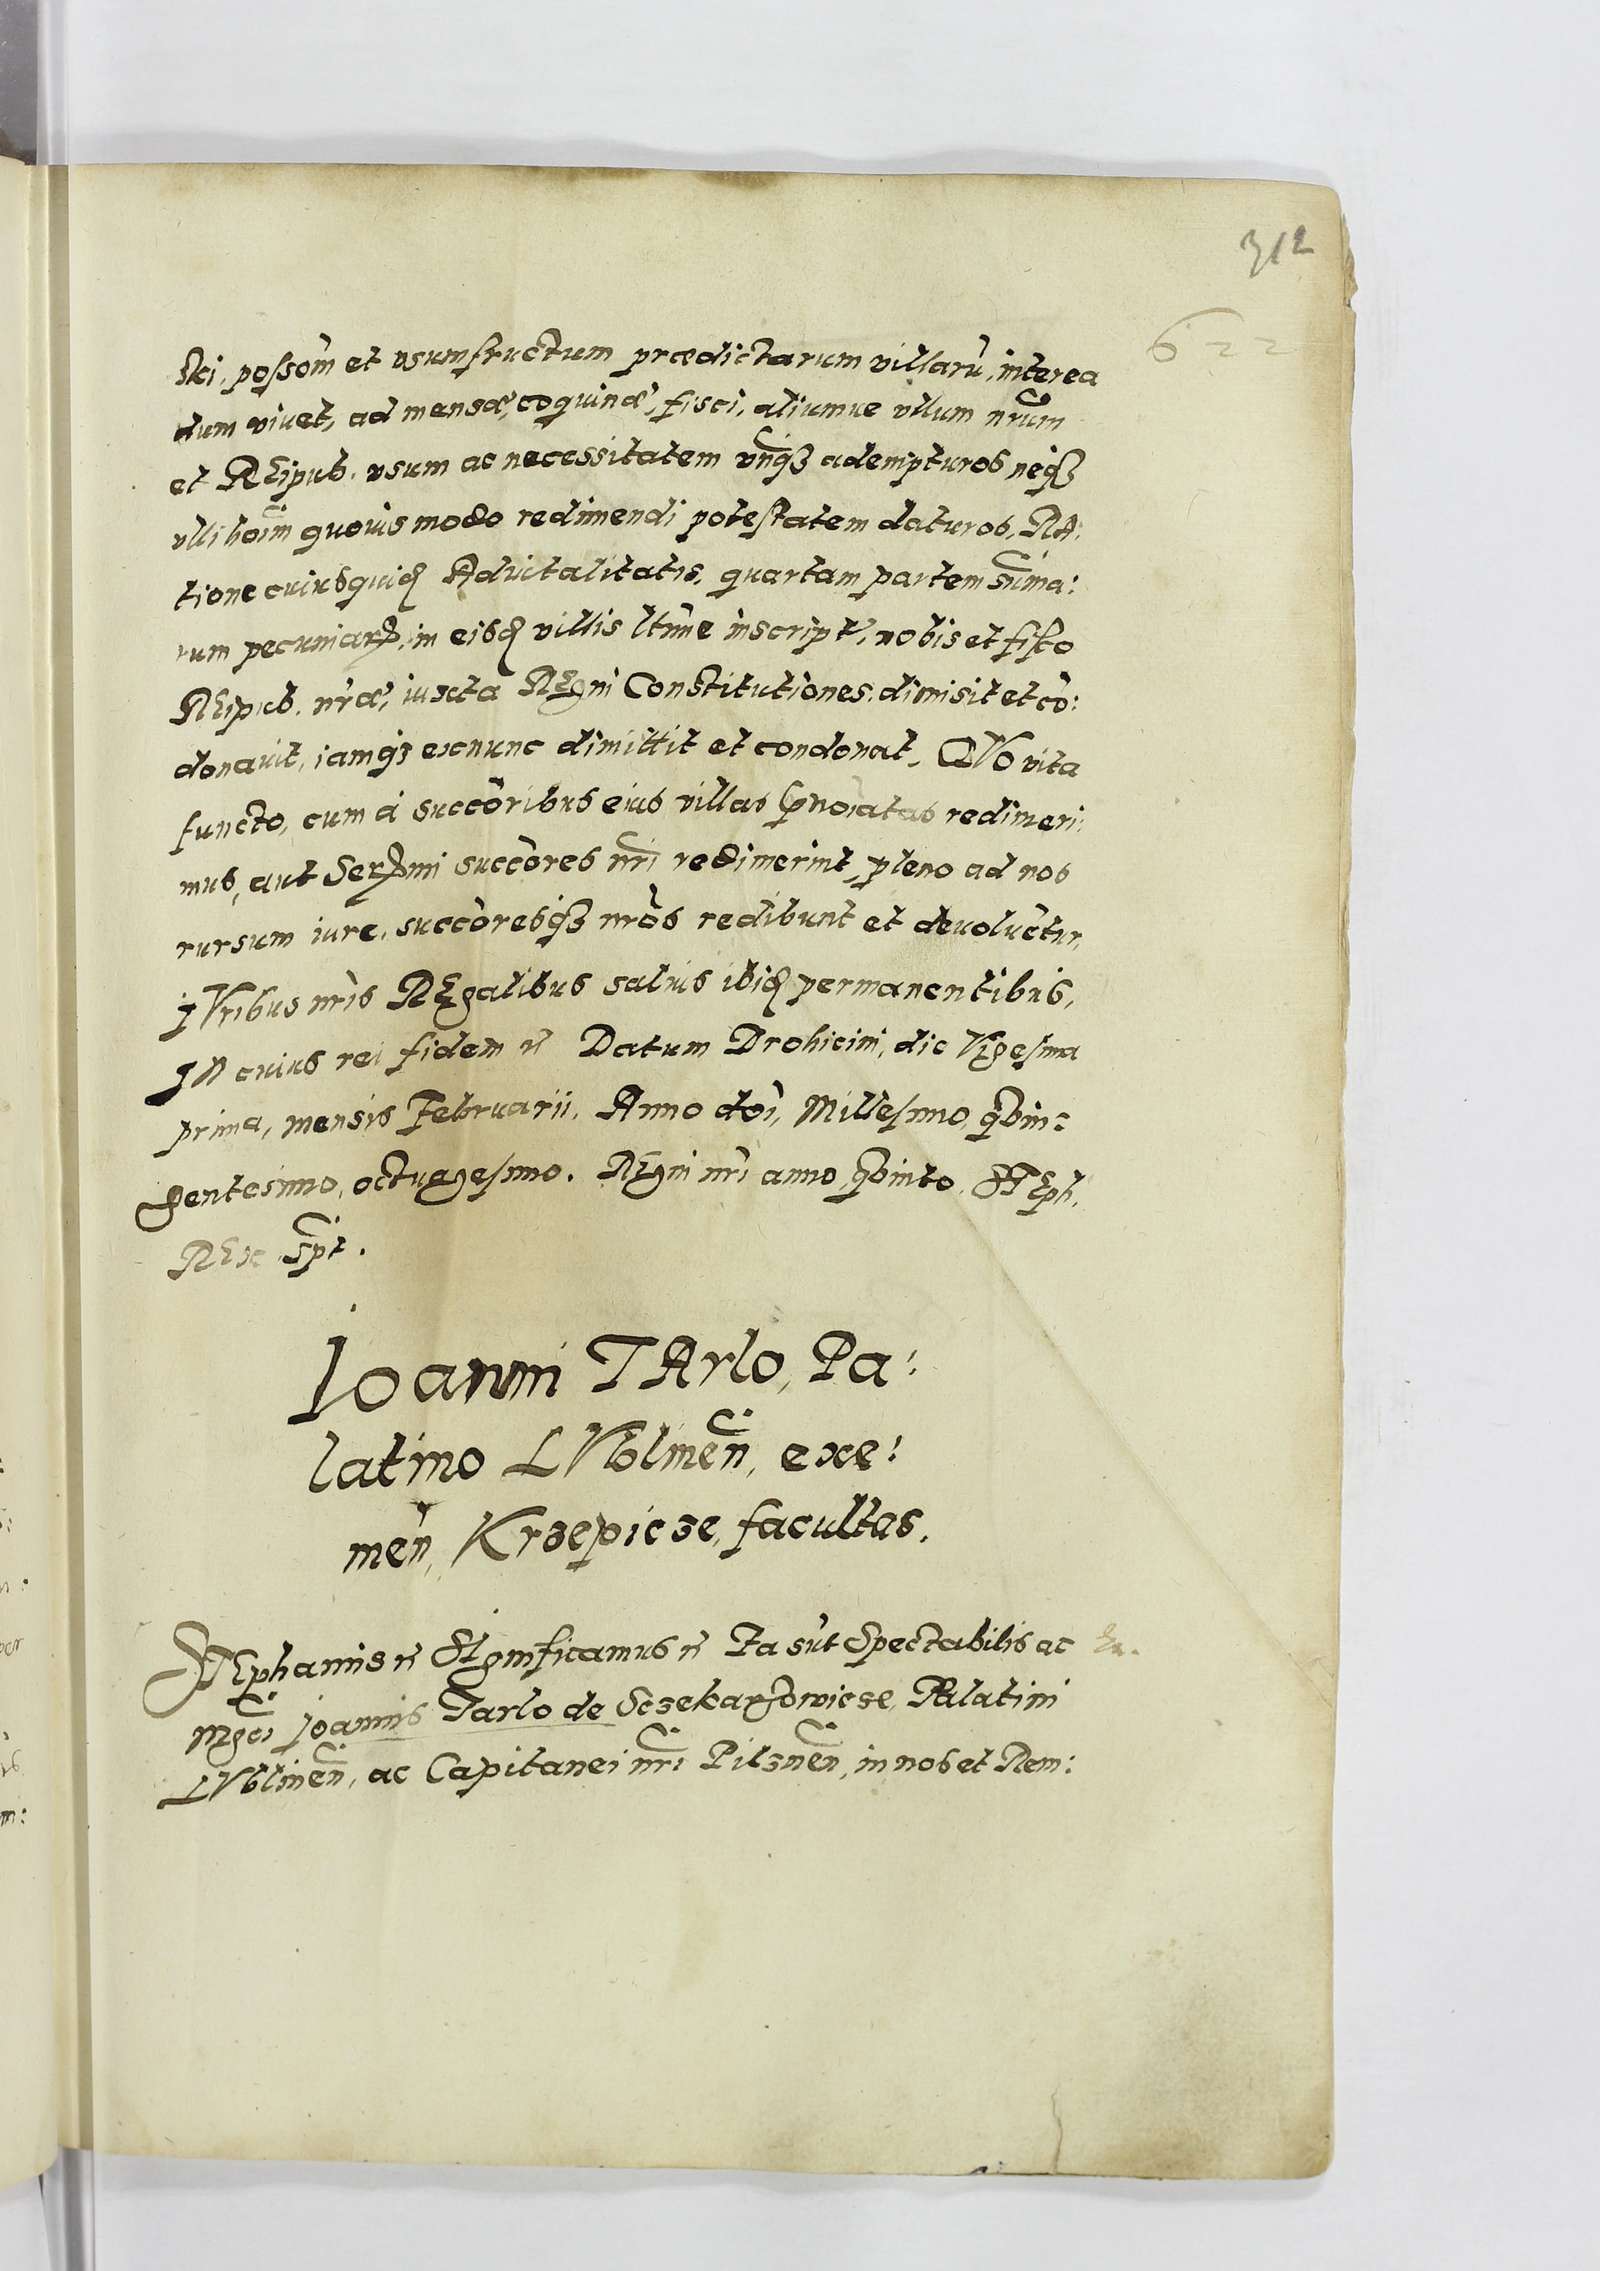 312
622
ski, possõm et vsumfructum prædictarum villarũ, interea
dum viuet, ad mensæ, coquinæ, fisci, aliumue vllum nr̃um
et REipub. vsum ac necessitatem vnq̃ȝ adempturos neqȝ
vlli hoĩm quouis modo redimendi potestatem daturos, RA:
tione cuiusquid̃ Aduitalitatis, quartam partem sum̃a:
rum pecuniarȝ, in eisd̃ villis ltĩme inscript., nobis et fisco
REipub. nr̃æ, iuxta REgni Constitutiones, dimisit et cõ:
donauit, iamqȝ exnunc dimittit et condonat, QVO vita
functo, cum à succõribus eius villas p̃noĩatas redimeri:
mus, aut Serȝmi succõres nr̃i redimerint, pleno ad nos
rursum iure, succõresqȝ nr̃os redibunt et deuoluẽtur,
IVribus nr̃is REgalibus saluis ibid̃ permanentibus,
IN cuius rei fidem ꝛc̃ Datum Drohicini, die VIgesima
prima, mensis Februarii, Anno doĩ, Millesimo, qVin:
gentesimo, octuagesimo. REgni nr̃i anno, qVinto, STEph.
REx sp̃t.
Ioanni TArlo, Pa:
latino LVblineñ, exe:
meñ, Krzepicze, facultas.
STEphanus ꝛc̃ SIgnificamus ꝛc̃ Ea sũt Spectabilis ac
Mgc̃i Joannis Tarlo de Sczekarzowicze, PAlatini
LVblineñ, ac Capitanei nr̃i Pilzneñ, in nos et Rem: